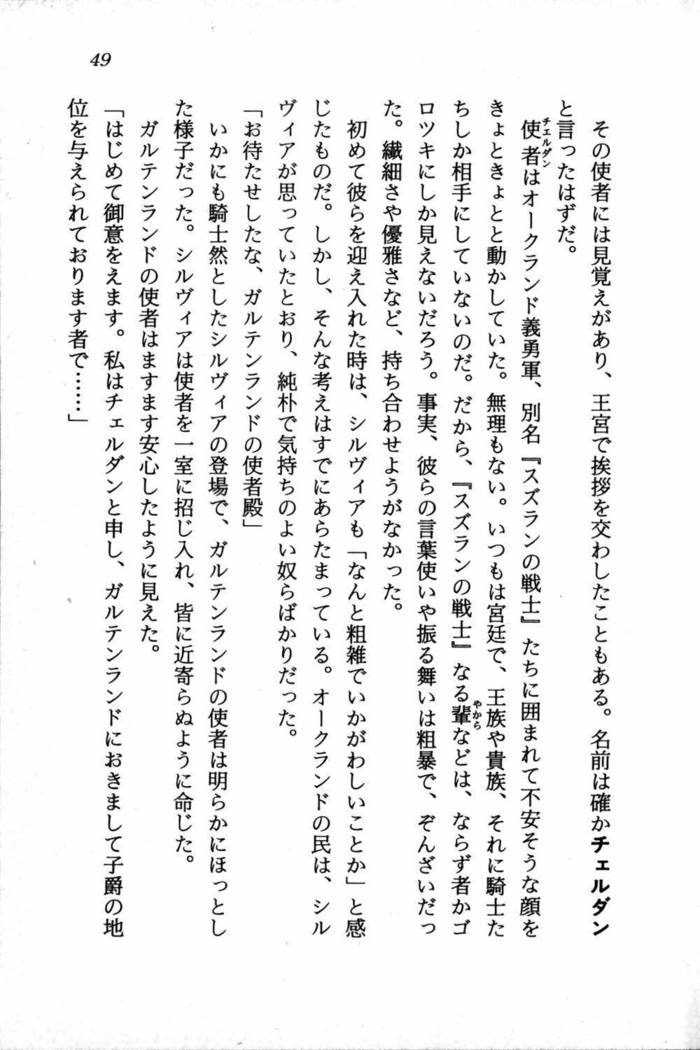 49
その使者には見覚えがあり、王宮で挨拶を交わしたこともある。名前は確かチェルダン
と言ったはずだ。
使者はオークランド義勇軍、別名『スズランの戦士』たちに囲まれて不安そうな顔を
チェルダン
きょときょとと動かしていた。無理もない。いつもは宮廷で、王族や貴族、それに騎士た
ちしか相手にしていないのだ。だから、『スズランの戦士』なる輩などは、ならず者かゴ
やから
ロツキにしか見えないだろう。事実、彼らの言葉使いや振る舞いは粗暴で、ぞんざいだっ
た。繊細さや優雅さなど、持ち合わせようがなかった。
初めて彼らを迎え入れた時は、シルヴィアも「なんと粗雑でいかがわしいことか」と感
じたものだ。しかし、そんな考えはすでにあらたまっている。オークランドの民は、シル
ヴィアが思っていたとおり、純朴で気持ちのよい奴らばかりだった。
「お待たせしたな、ガルテンランドの使者殿」
いかにも騎士然としたシルヴィアの登場で、ガルテンランドの使者は明らかにほっとし
た様子だった。シルヴィアは使者を一室に招じ入れ、皆に近寄らぬように命じた。
ガルテンランドの使者はますます安心したように見えた。
「はじめて御意をえます。私はチェルダンと申し、ガルテンランドにおきまして子爵の地
位を与えられております者で……」